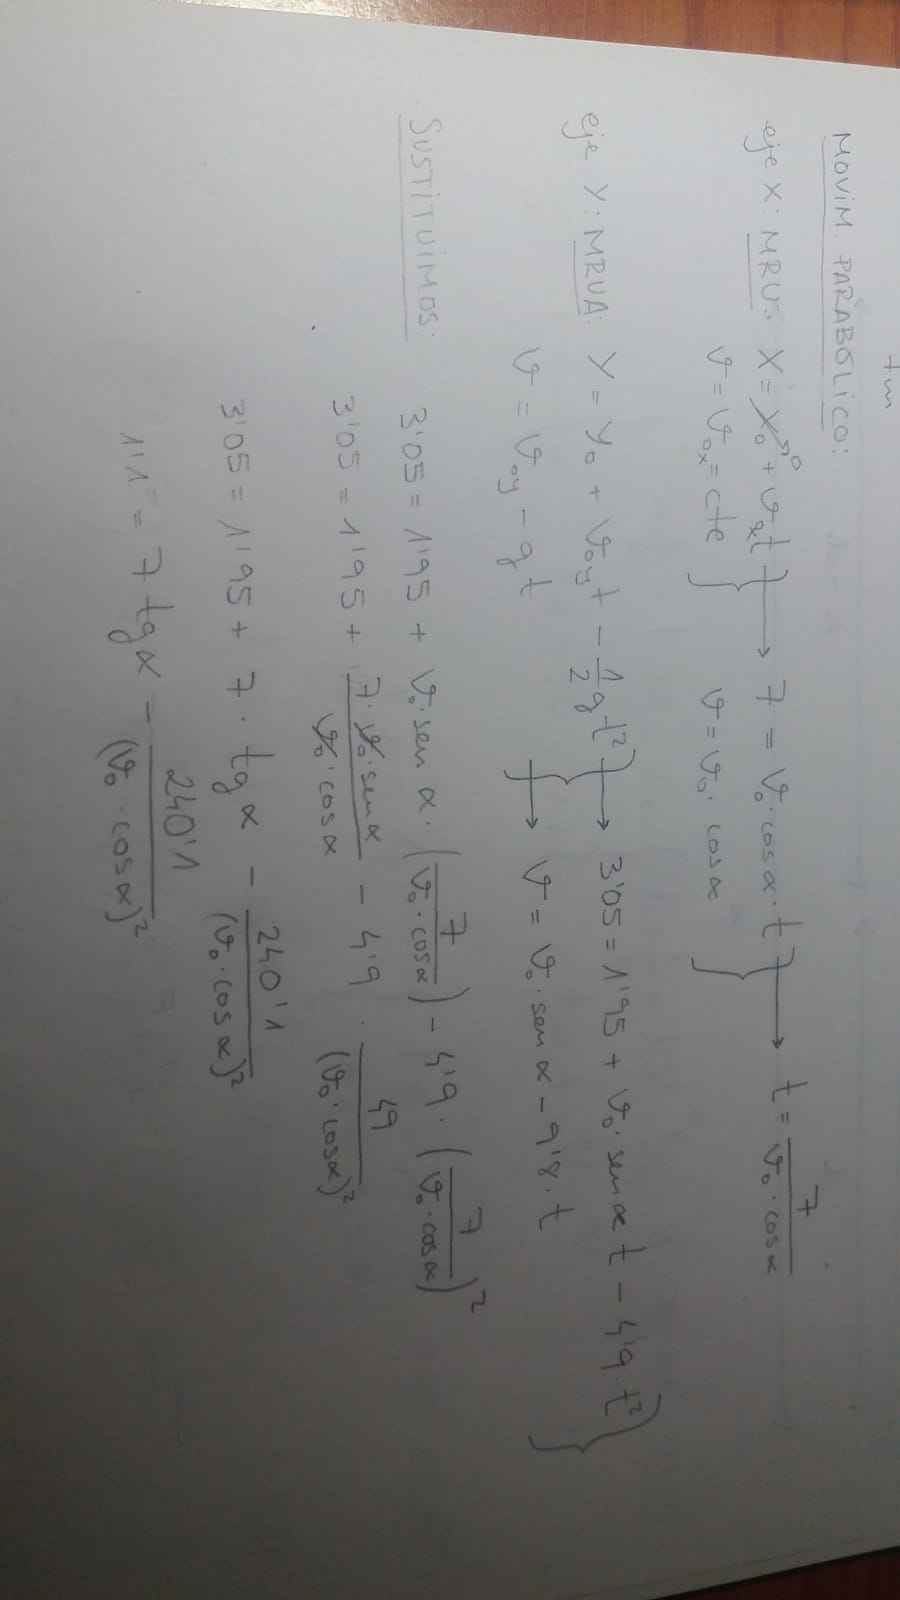 7m
MOVIM. PARABÓLICO:
eje X: MRU: X = X₀ + vₓt → 7 = v₀·cosα·t → t = 7/(v₀·cosα)
v = v₀ₓ = cte } v = v₀·cosα }
eje Y: MRUA: y = y₀ + v₀yt − 1/2 gt² → 3'05 = 1'95 + v₀·senα t − 4'9·t²
v = v₀y − gt } → v = v₀·senα − 9'8·t }
SUSTITUIMOS: 3'05 = 1'95 + v₀·sen α·(7/(v₀·cosα)) − 4'9·(7/(v₀·cosα))²
3'05 = 1'95 + (7·v₀·senα)/(v₀·cosα) − 4'9·49/(v₀·cosα)²
3'05 = 1'95 + 7·tgα − 240'1/(v₀·cosα)²
1'1 = 7 tgα − 240'1/(v₀·cosα)²